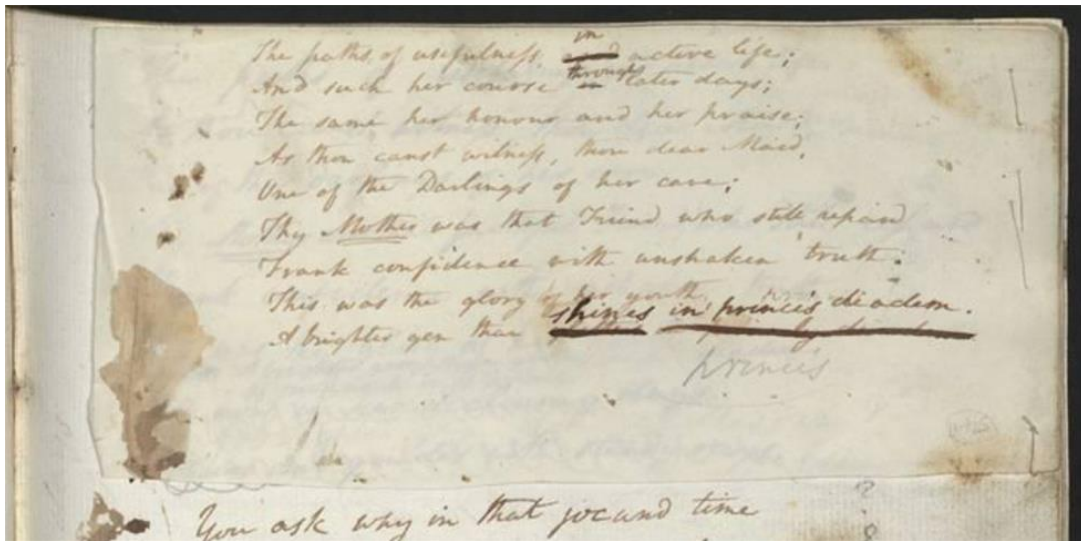 The paths of usefulness, in active life;
And such her course through later days;
The same her honour and her praise;
As thou canst witness, thou dear Maid,
One of the Darlings of her care;
Thy Mother was that Friend who still repaid
Frank confidence with unshaken truth:
This was the glory of her youth,
A brighter gem than shines in prince's diadem.
prince's
You ask why in that jocund time